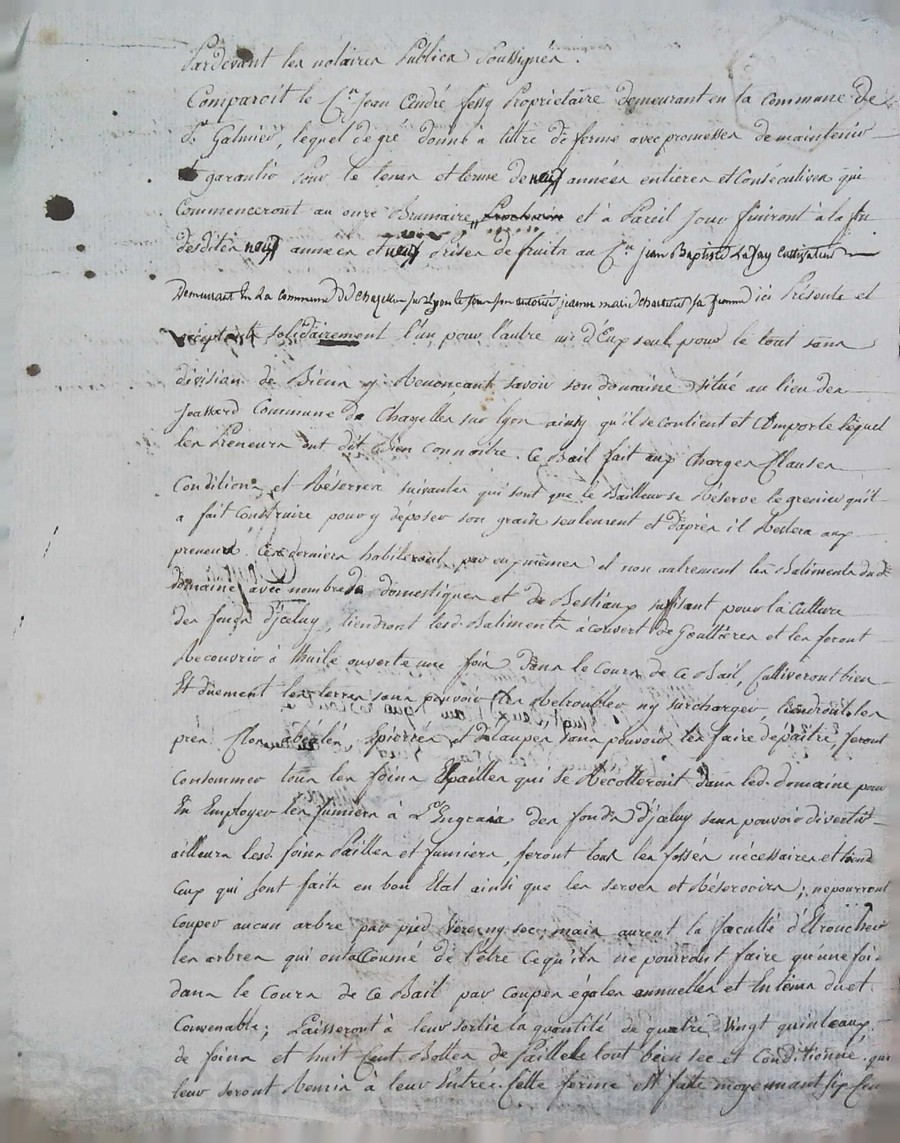 Pardevant les notaires Publics Soussignés.
Comparoit le C.en Jean André fessy Proprietaire demeurant en la commune de
S.t Galmier, lequel de gré donne à titre de ferme avec promesses de maintenir
et garantir pour le tems et terme de neuf années entieres et Consécutives qui
Commenceront au onze Brumaire et à Pareil Jour finiront à la fin
desdites neuf années et neuf prises de fruits au C.en jean Baptiste Lafay Cultivateur
Demeurant En La Commune De Chazelles sur Lyon jeanne marie sa femme ici Présents et
acceptants solidairement l'un pour l'autre un d'Eux seul pour le tout sans
division de Biens y Renonçant savoir son domaine situé au lieu des
Commune de Chazelles sur Lyon ainsy qu'il se contient et Comporte lequel
les Preneurs ont dit Bien connoitre. Ce Bail fait aux Charges Clauses
Conditions et Réserves suivantes qui sont que le Bailleur se Réserve le grenier qu'il
a fait Construire pour y deposer son grain seulement et d'après il Restera aux
preneurs. Ces derniers habiteront par eux mêmes et non autrement les Batiments dud.t
domaine avec nombre de domestiques et de Bestiaux suffisant pour la Culture
des fonds d'jceluy, tiendront lesd. Batiments à couvert de Gouttieres et les feront
Recouvrir à thuile ouverte une fois dans le Cours de ce Bail, Cultiveront bien
Et duement les terres sans pouvoir les Retroubler ny surcharger, tiendront les
prés Clos Epierrés et sans pouvoir les faire dépaitre, feront
consommer tous les foins Epailles qui se Recolteront dans led. domaine pour
En Employer les fumiers à L'Engrais des fonds d'jceluy sans pouvoir divertir
ailleurs lesd. foins Pailles et fumiers, feront tous les fossés nécessaires et tiend
Ceux qui sont faits en bon Etat ainsi que les serves et Réservoirs; ne pourront
Couper aucun arbre par pied Verd ny sec, mais auront la faculté d'Etroncher
les arbres qui ont accoutumé de l'être Ce qu'ils ne pourront faire qu'une fois
dans le Cours de ce Bail par Coupes égales annuelles et En tems du et
Convenable; Laisseront à leur sortie la quantité de quatre Vingt quinteaux
de foins et huit Cent Bottes de Paille le tout bien sec et Conditionné qui
leur seront Remis à leur Entrée. Cette ferme est faite moyennant six Cen